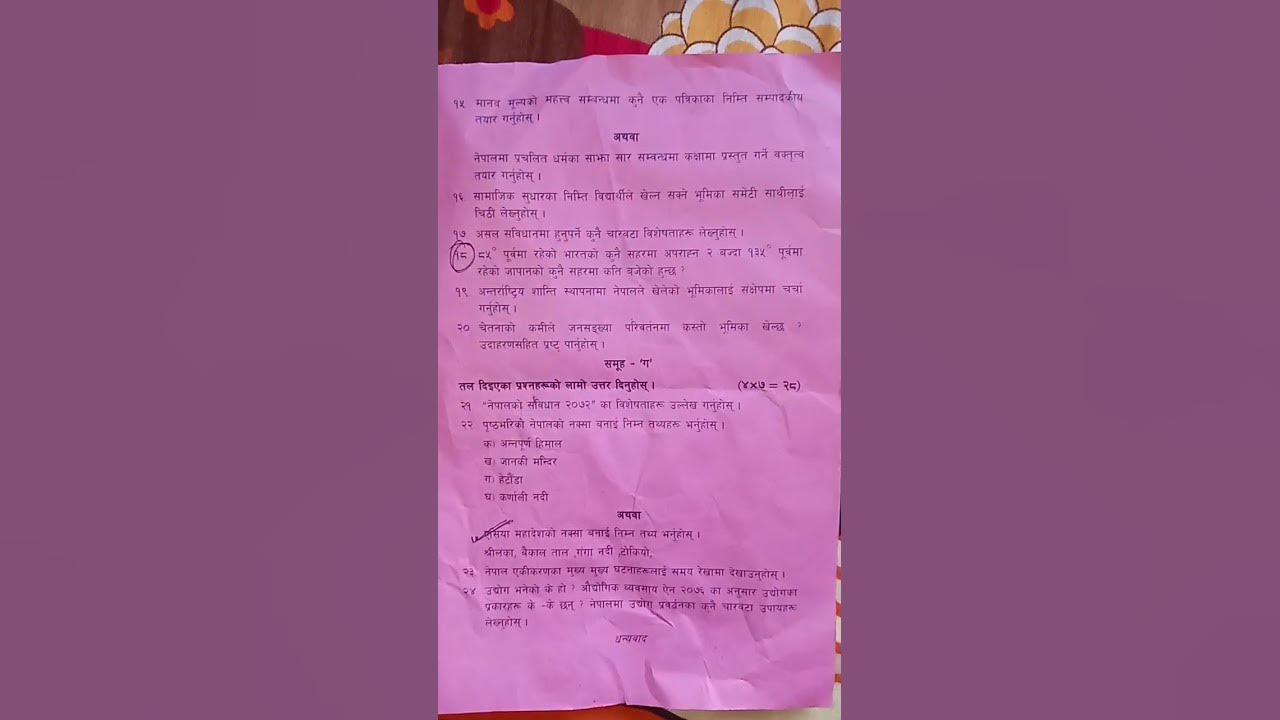 १५ मानव मूल्यको महत्त्व सम्बन्धमा कुनै एक पत्रिकाका निम्ति सम्पादकीय
तयार गर्नुहोस् ।
अथवा
नेपालमा प्रचलित धर्मका साझा सार सम्बन्धमा कक्षामा प्रस्तुत गर्ने वक्तृत्व
तयार गर्नुहोस् ।
१६ सामाजिक सुधारका निम्ति विद्यार्थीले खेल्न सक्ने भूमिका समेटी साथीलाई
चिठी लेख्नुहोस् ।
१७ असल संविधानमा हुनुपर्ने कुनै चारवटा विशेषताहरू लेख्नुहोस् ।
१८ ८५° पूर्वमा रहेको भारतको कुनै सहरमा अपराह्न २ बज्दा १३५° पूर्वमा
रहेको जापानको कुनै सहरमा कति बजेको हुन्छ ?
१९ अन्तर्राष्ट्रिय शान्ति स्थापनामा नेपालले खेलेको भूमिकालाई संक्षेपमा चर्चा
गर्नुहोस् ।
२० चेतनाको कमीले जनसङ्ख्या परिवर्तनमा कस्तो भूमिका खेल्छ ?
उदाहरणसहित प्रष्ट पार्नुहोस् ।
समूह - 'ग'
तल दिइएका प्रश्नहरूको लामो उत्तर दिनुहोस् । (४×७ = २८)
२१ "नेपालको संविधान २०७२" का विशेषताहरू उल्लेख गर्नुहोस् ।
२२ पृष्ठभरिको नेपालको नक्सा बनाई निम्न तथ्यहरू भर्नुहोस् ।
क) अन्नपूर्ण हिमाल
ख) जानकी मन्दिर
ग) हेटौंडा
घ) कर्णाली नदी
अथवा
एसिया महादेशको नक्सा बनाई निम्न तथ्य भर्नुहोस् ।
श्रीलंका, बैकाल ताल ,गंगा नदी ,टोकियो,
२३ नेपाल एकीकरणका मुख्य मुख्य घटनाहरूलाई समय रेखामा देखाउनुहोस् ।
२४ उद्योग भनेको के हो ? औद्योगिक व्यवसाय ऐन २०७६ का अनुसार उद्योगका
प्रकारहरू के -के छन् ? नेपालमा उद्योग प्रवर्द्धनका कुनै चारवटा उपायहरू
लेख्नुहोस् ।
धन्यवाद